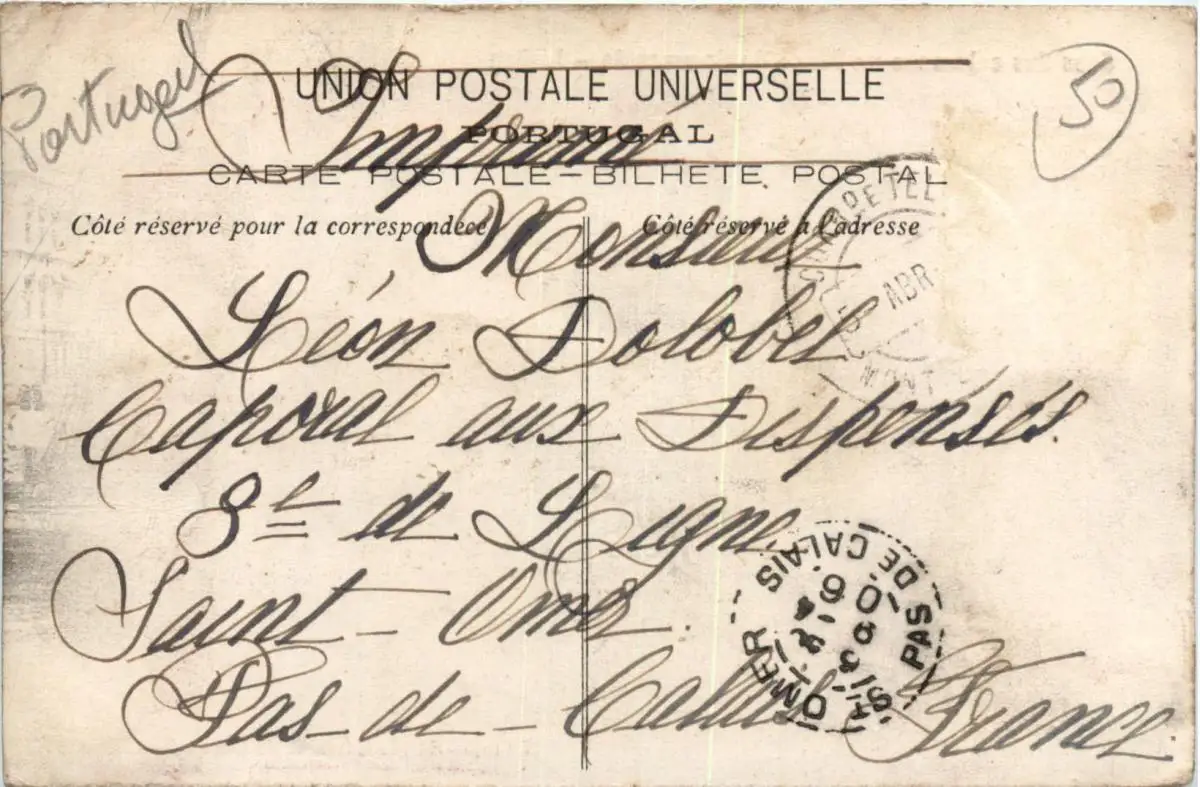 Portugal
50
UNION POSTALE UNIVERSELLE
Imprimé
PORTUGAL
CARTE POSTALE – BILHETE POSTAL
Côté réservé pour la correspondece
Côté réservé à l'adresse
Monsieur
Léon Dolobel
Caporal aux Dispensés
8e de Ligne
Saint-Omer.
Pas-de-Calais France.
ABR
MONT
ST OMER PAS DE CALAIS